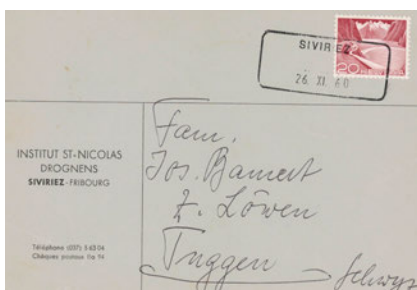 SIVIRIEZ
26. XI. 60
20
INSTITUT ST-NICOLAS
DROGNENS
SIVIRIEZ-FRIBOURG
Téléphone (037) 5 63 04
Chèques postaux IIa 94
Fam.
Jos. Bamert
z. Löwen
Tuggen
Schwyz